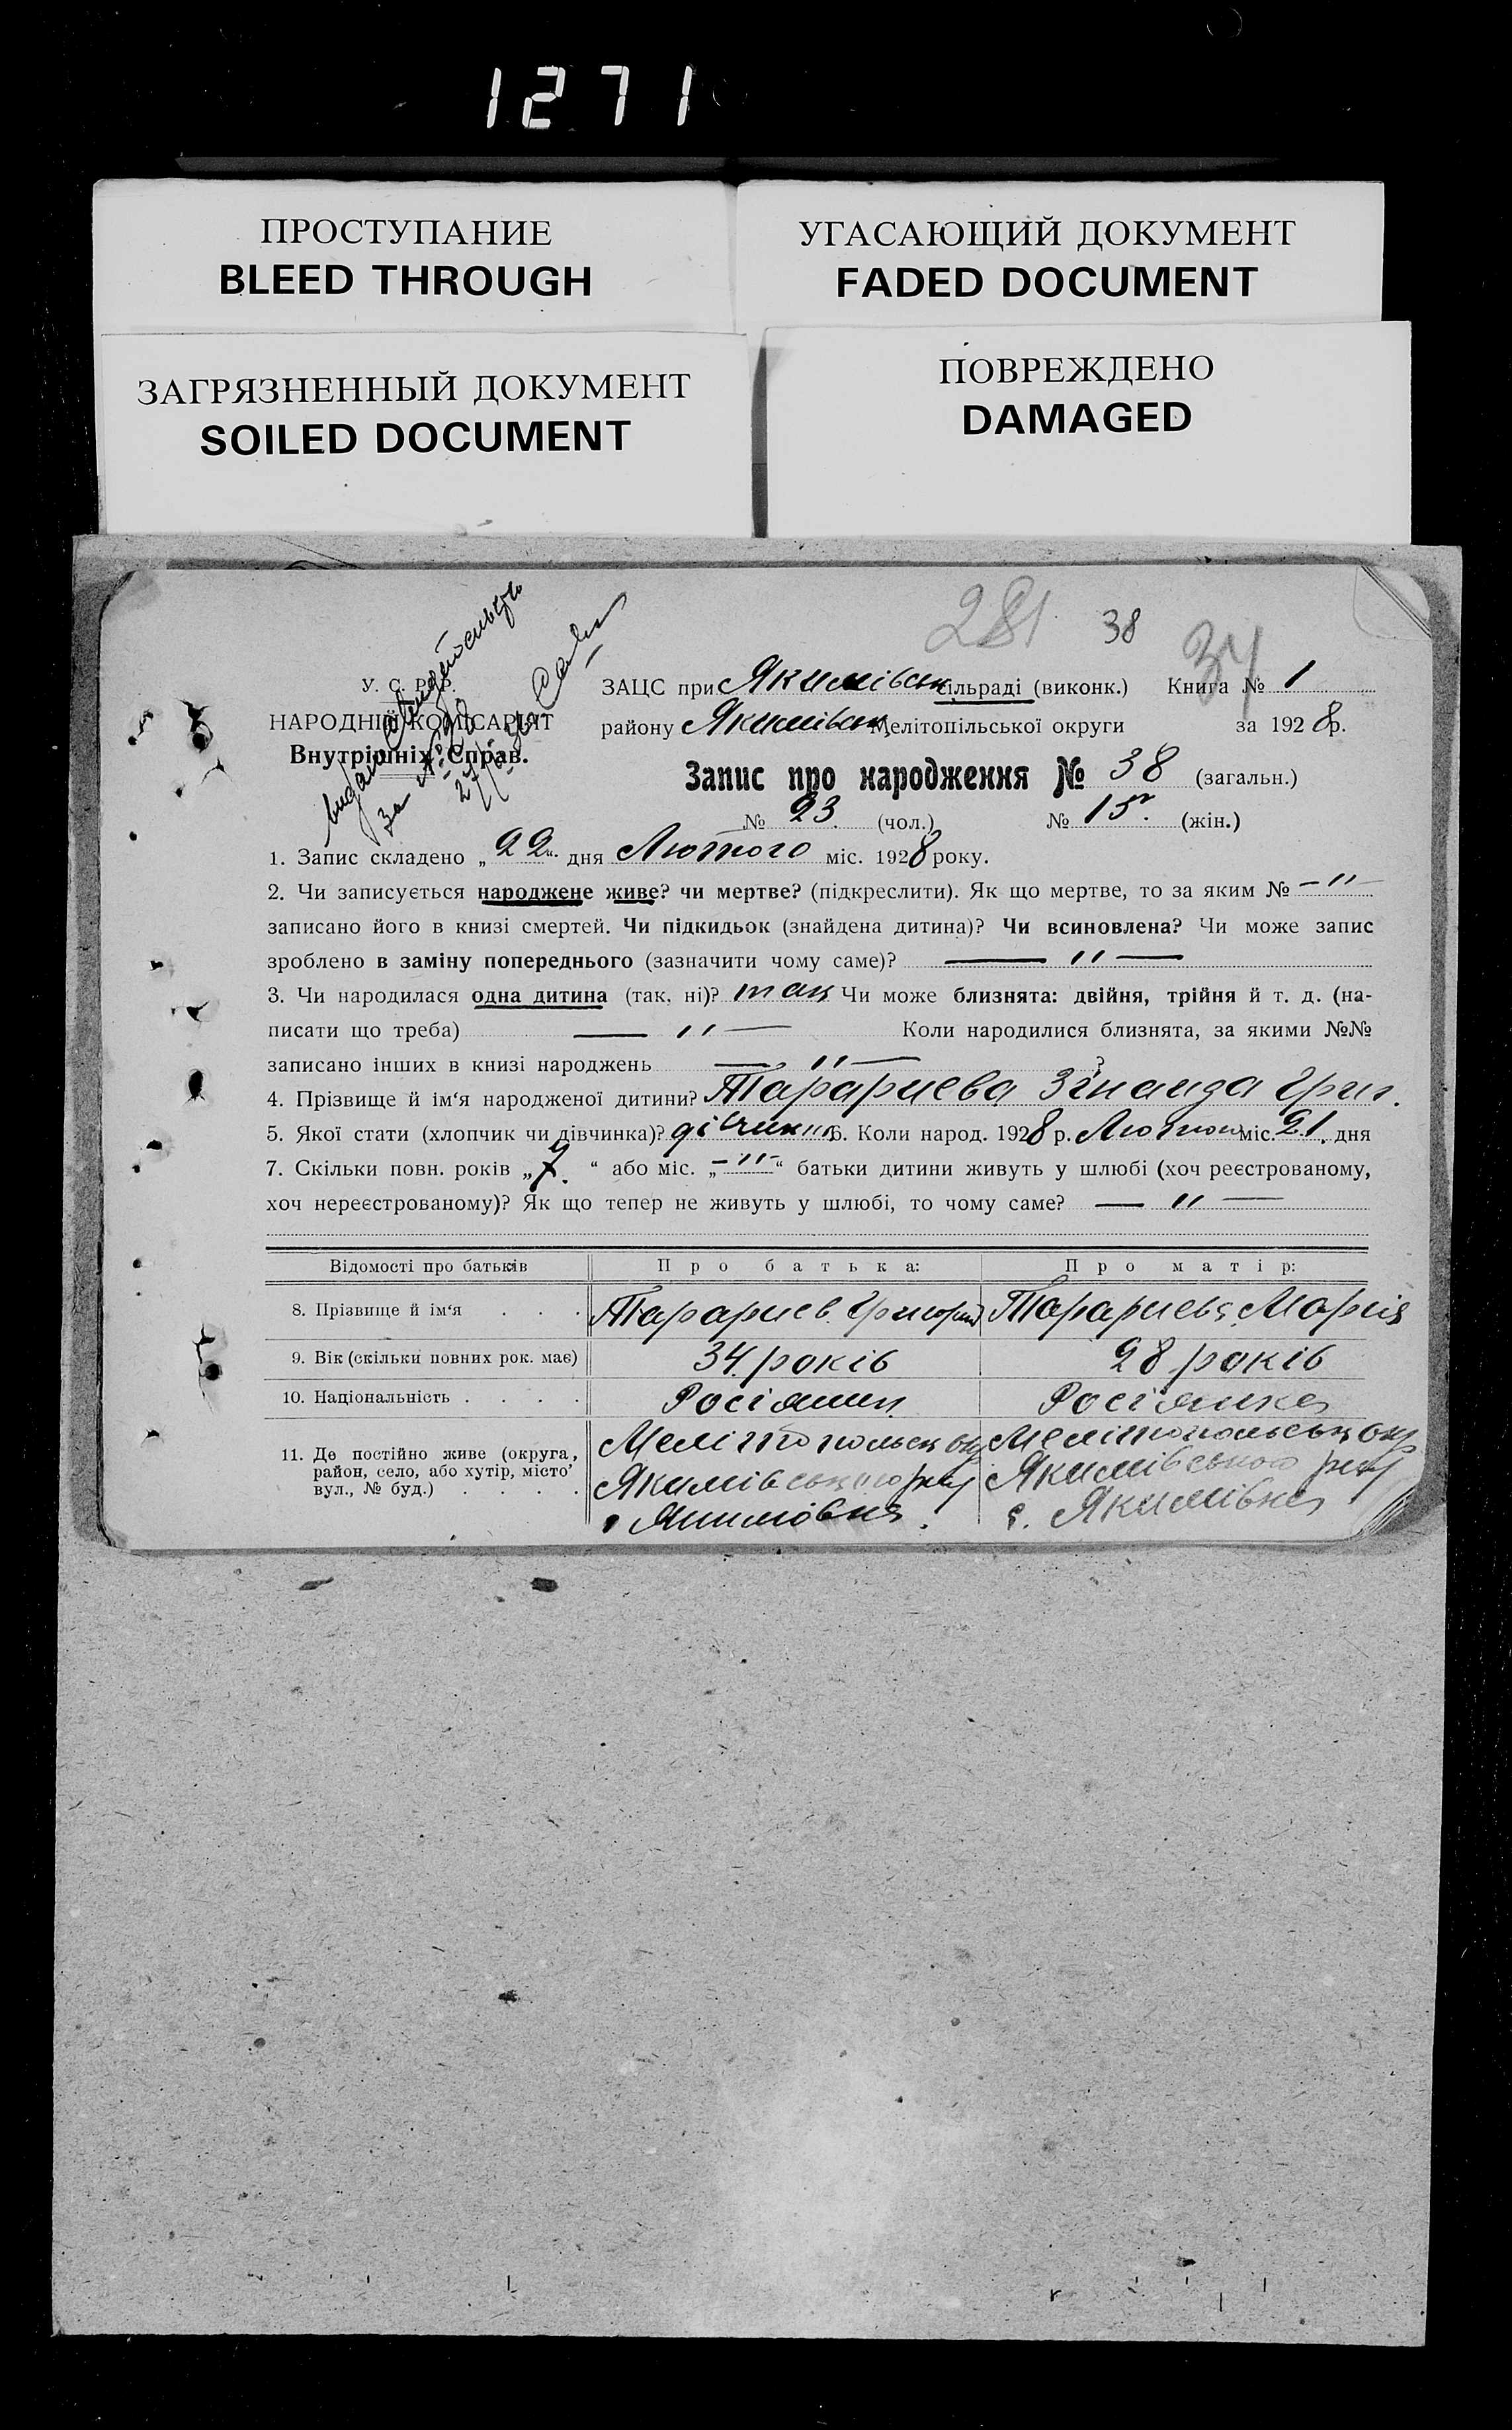 1271
ПРОСТУПАНИЕ
BLEED THROUGH
УГАСАЮЩИЙ ДОКУМЕНТ
FADED DOCUMENT
ЗАГРЯЗНЕННЫЙ ДОКУМЕНТ
SOILED DOCUMENT
ПОВРЕЖДЕНО
DAMAGED
281 38 34
У. С. Р. Р.
НАРОДНІЙ КОМІСАРІЯТ
Внутрішніх Справ.
За №
ЗАЦС при Якимівськ сільраді (виконк.) Книга № 1
району Якимівськ Мелітопільської округи за 1928 р.
Запис про народження № 38 (загальн.)
№ 23. (чол.) № 15. (жін.)
1. Запис складено „22" дня Лютого міс. 1928 року.
2. Чи записується народжене живе? чи мертве? (підкреслити). Як що мертве, то за яким № — "
записано його в книзі смертей. Чи підкидьок (знайдена дитина)? Чи всиновлена? Чи може запис
зроблено в заміну попереднього (зазначити чому саме)? — " —
3. Чи народилася одна дитина (так, ні)? так Чи може близнята: двійня, трійня й т. д. (на-
писати що треба) — " — Коли народилися близнята, за якими №№
записано інших в книзі народжень — " — ?
4. Прізвище й ім'я народженої дитини? Тарариева Зінаида Григ.
5. Якої стати (хлопчик чи дівчинка)? 6. Коли народ. 1928 р. Лютого міс. 21. дня
7. Скільки повн. років „ “ або міс. „-"-“ батьки дитини живуть у шлюбі (хоч реєстрованому,
хоч нереєстрованому)? Як що тепер не живуть у шлюбі, то чому саме? — " —
Відомості про батьків Про батька: Про матір:
8. Прізвище й ім'я . . . Тарариев Григорий Тарариева Мария
9. Вік (скільки повних рок. має) 34 років 28 років
10. Національність . . . . Росіянин Росіянка
11. Де постійно живе (округа, район, село, або хутір, місто' вул., № буд.) . . . .
Мелітопольськ окр Мелітопольськ окр
Якимівського рну Якимівського рну
с. Якимівка. с. Якимівка